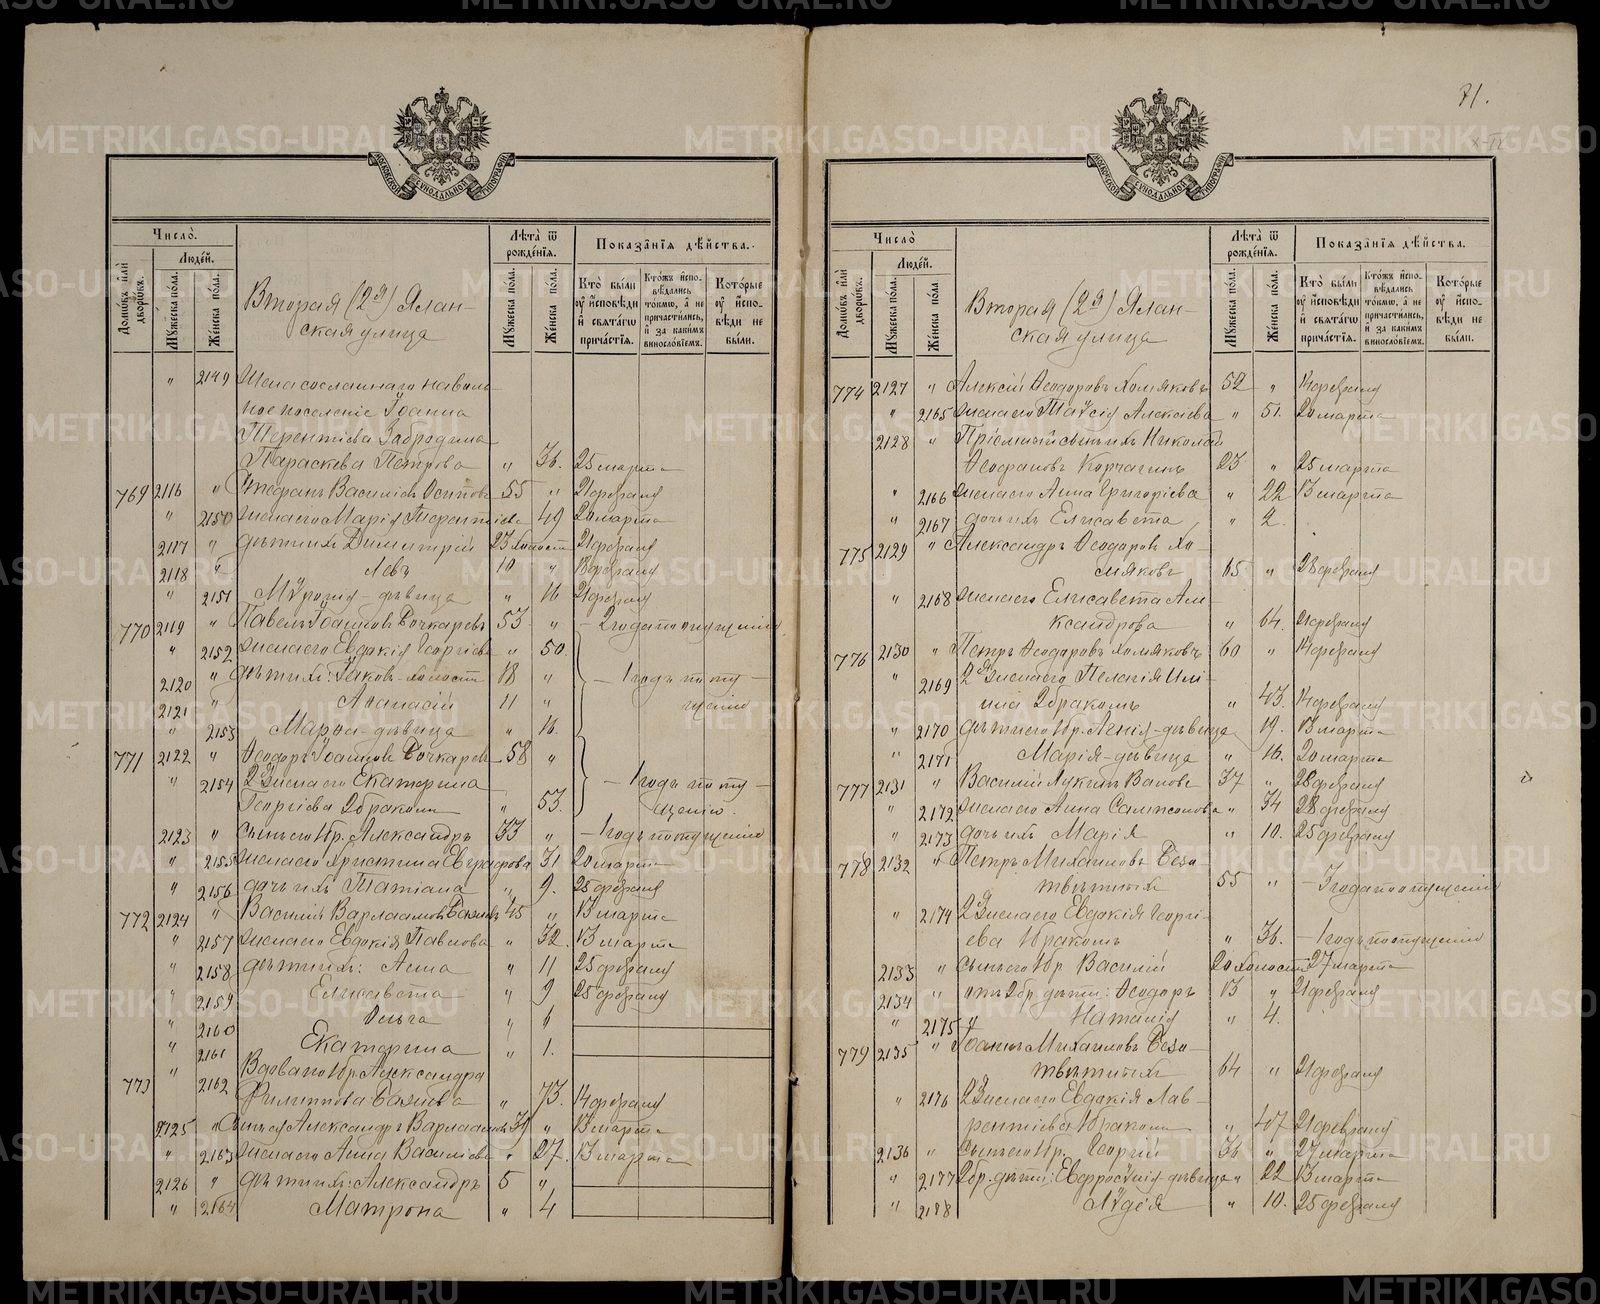 METRIKI.GASO-URAL.RU
МОСКОВСКОЙ СѴНОДАЛЬНОЙ ТИПОГРАФІИ
Число̀.
Людей.
Домѡвъ и҆лѝ дворѡвъ.
Мꙋжеска пола.
Женска пола.
Вторая (2я) Ялан-
ская улица
Лѣта̀ ѿ рожде́нїѧ.
Мꙋжеска пола.
Женска пола.
Показа́нїѧ дѣ́йства.
Кто̀ бы́ли ᲂу҆ и҆сповѣди и҆ свѧта́гѡ прича́стїѧ.
Кто́жъ и҆спо-вѣдались то́кмѡ, а҆ не причасти́лись, и҆ за каки́мъ винословїемъ.
Кото́рые ᲂу҆ и҆спо-вѣди не бы́ли.
" 2149 Жена сосланнаго на воль-
ное поселеніе Іоанна
Терентіева Забродина
Параскева Петрова " 36. 25 марта
769 2116 " Стефанъ Василіевъ Осиповъ 55 " 21 февраля
" 2150 жена его Марія Терентіева " 49 20 марта
2117 " дѣти ихъ Димитрій 23 холостъ 21 февраля
2118 " Левъ 10 " 13 февраля
" 2151 дѣвица " 16 21 февраля
770 2119 " Павелъ Іоанновъ Бочкаревъ 53 " - 2 года по опущенію
" 2152 жена его Евдокія Георгіева " 50.
2120 " дѣти ихъ: Іаковъ - холостъ 18 " - 1 годъ по опу-
2121 " Аѳанасій 11 " щенію
" 2153 Марѳа - дѣвица " 16.
771 2122 " Ѳеодоръ Іоанновъ Бочкаревъ 58 "
" 2154 2я жена его Екатерина - 1 годъ по опу-
Георгіева 2 бракомъ " 53. щенію.
2123 " сынъ его 1 бр. Александръ 33 " - 1 годъ по опущенію
" 2155 жена его Христина Евграфова " 31. 20 марта
" 2156 дочь ихъ Татіана " 9. 25 февраля
772 2124 " Василій Варлаамовъ 45 " 13 марта
" 2157 жена его Евдокія Павлова " 32. 13 марта
" 2158 дѣти ихъ: Анна " 11 25 февраля
" 2159 Елисавета " 9 25 февраля
" 2160 Ольга " 6
" 2161 Екатерина " 1.
773 " 2162 Вдова 1 бр. Александра
Филиппова " 73. 14 февраля
2125 " Сынъ ея Александръ Варлаамовъ " 13 марта
" 2163 жена его Анна Василіева " 27. 13 марта
2126 " дѣти ихъ: Александръ 5 "
" 2164 Матрона " 4
71.
МОСКОВСКОЙ СѴНОДАЛЬНОЙ ТИПОГРАФІИ
Число̀
Людей.
Домѡвъ и҆лѝ дворѡвъ.
Мꙋжеска пола.
Женска пола
Вторая (2я) Ялан-
ская улица
Лѣта̀ ѿ рожде́нїѧ.
Мꙋжеска пола.
Женска пола.
Показа́нїѧ дѣ́йства.
Кто̀ бы́ли ᲂу҆ и҆сповѣди и҆ свѧта́гѡ прича́стїѧ.
Кто́жъ и҆спо-вѣдались то́кмѡ, а҆ не причасти́лись, и҆ за каки́мъ винословїемъ.
Кото́рые ᲂу҆ и҆спо-вѣди не бы́ли.
774 2127 " Алексій Ѳеодоровъ Хомяковъ 52 " 14 февраля
" 2165 жена его Таисія Алексіева " 51. 20 марта
2128 " Пріемный сынъ ихъ Николай
Ѳеофановъ Корчагинъ 23 " 25 марта
" 2166 жена его Анна Григоріева " 22 13 марта
" 2167 дочь ихъ Елисавета " 2.
775 2129 " Александръ Ѳеодоровъ Хо-
мяковъ 65 " 28 февраля
" 2168 жена его Елисавета Але-
ксандрова " 64. 21 февраля
776 2130 " Петръ Ѳеодоровъ Хомяковъ 60 " 14 февраля
" 2169 2я жена его Пелагія Илі-
ина 2 бракомъ " 43. 14 февраля
" 2170 дѣти его 1 бр. дѣвица 19. 13 марта
" 2171 Марія - дѣвица " 16. 20 марта
777 2131 " Василій Лукинъ 37 " 28 февраля
" 2172 жена его Анна Сампсонова " 34 28 февраля
" 2173 дочь ихъ Марія " 10. 25 февраля
778 2132 " Петръ Михаиловъ Безо-
твѣтныхъ 55 " - 3 года по опущенію
" 2174 2я жена его Евдокія Георгі-
ева 1 бракомъ " 36. - 1 годъ по опущенію
2133 " сынъ его 1 бр Василій 20 холостъ 27 марта
2134 " отъ 2 бр. дѣти: Ѳеодоръ 13 " 21 февраля
" 2175 " Наталія " 4.
779 2135 " Іоаннъ Михаиловъ Безо-
твѣтныхъ 64 " 21 февраля
" 2176 2я жена его Евдокія Лав-
рентіева 1 бракомъ " 47 21 февраля
2136 " сынъ его 1 бр. Георгій 36 " 27 марта
" 2177 2 бр. дѣти: Евфросинія - дѣвица " 22 13 марта
" 2178 Лидія " 10. 25 февраля